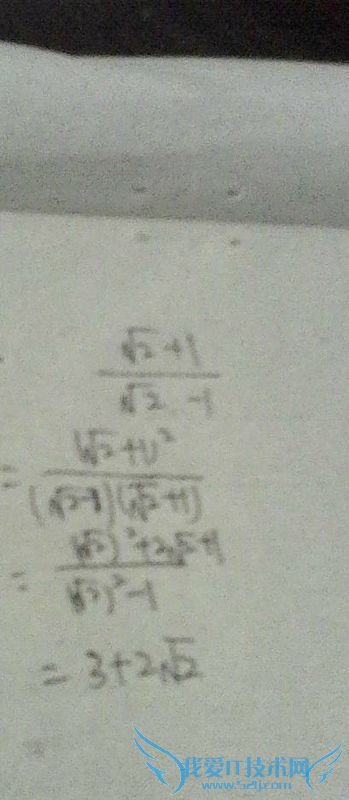 (√2+1)/(√2-1)
= (√2+1)²/(√2-1)(√2+1)
= (√2)²+2√2+1/(√2)²-1
= 3+2√2
我爱IT技术网
www.52ij.com